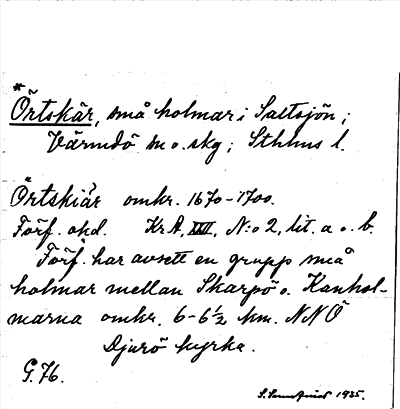 *
Örtskär, små holmar i Saltsjön;
Värmdö sn o. skg; Sthlms l.
Örtskiär omkr. 1670-1700.
Förf. okd. KrA, XXV, N:o 2, lit. a o. b.
Förf. har avsett en grupp små
holmar mellan Skarpö o. Kanhol-
marna omkr. 6-6½ km. NNÖ
Djurö kyrka.
G. 76.
1935.